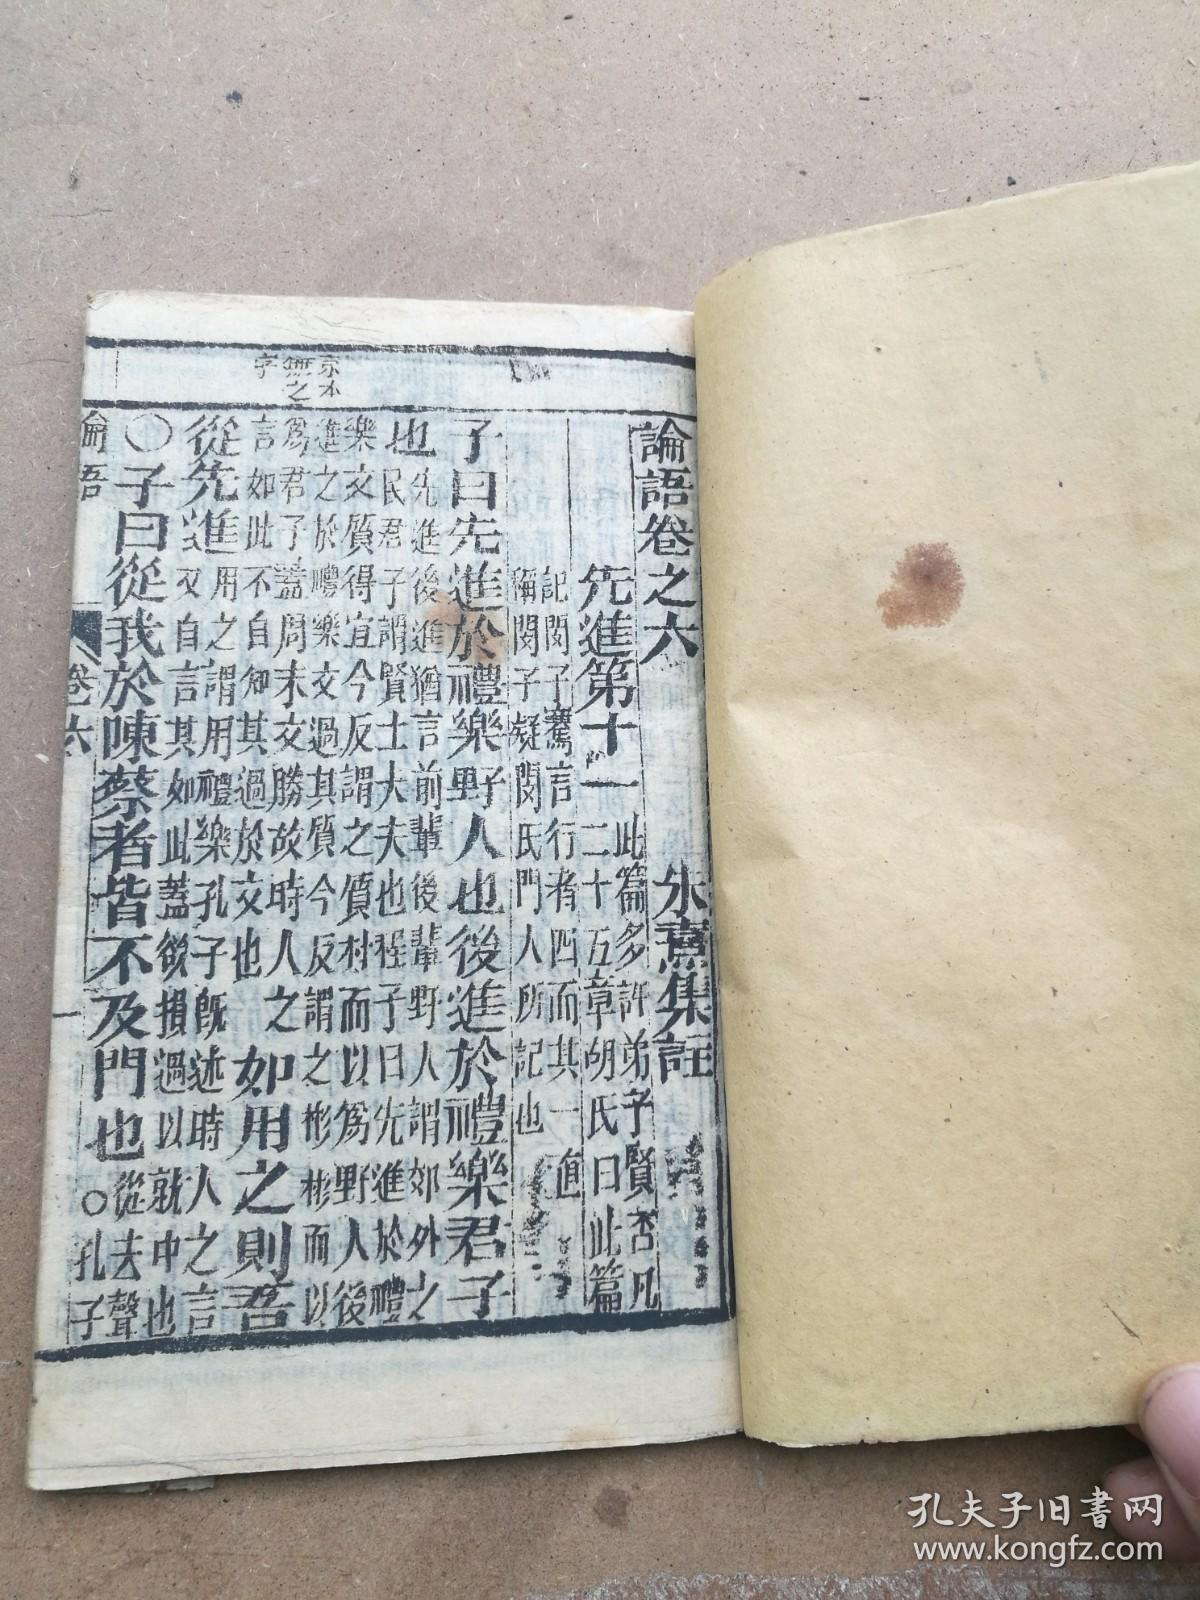 論語卷之六
朱熹集註
先進第十一
此篇多評弟子賢否凡
二十五章胡氏曰此篇
記閔子騫言行者四而其一直
稱閔子疑閔氏門人所記也
子曰先進於禮樂野人也後進於禮樂君子
也
先進後進猶言前輩後輩野人謂郊外之
民君子謂賢士大夫也程子曰先進於禮
樂文質得宜今反謂之質村而以為野人後
進之於禮樂文過其質今反謂之彬彬而以
為君子蓋周末文勝故時人之
言如此不自知其過於文也
如用之則吾
從先進
用之謂用禮樂孔子既述時人之言
又自言其如此蓋欲損過以就中也
○子曰從我於陳蔡者皆不及門也
從去聲
○孔子
京本
無之
字
論語
卷六
一
孔夫子旧书网
www.kongfz.com